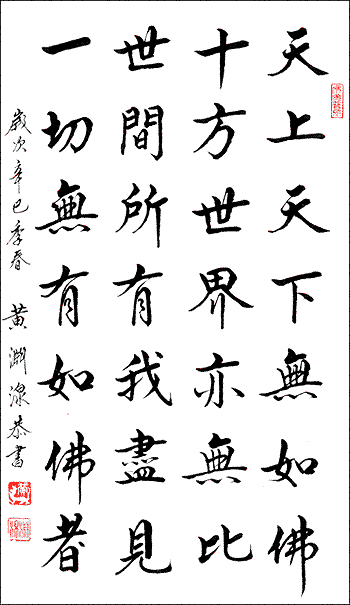 天上天下無如佛
十方世界亦無比
世間所有我盡見
一切無有如佛者
歲次辛巳季春 黃淵淥恭書